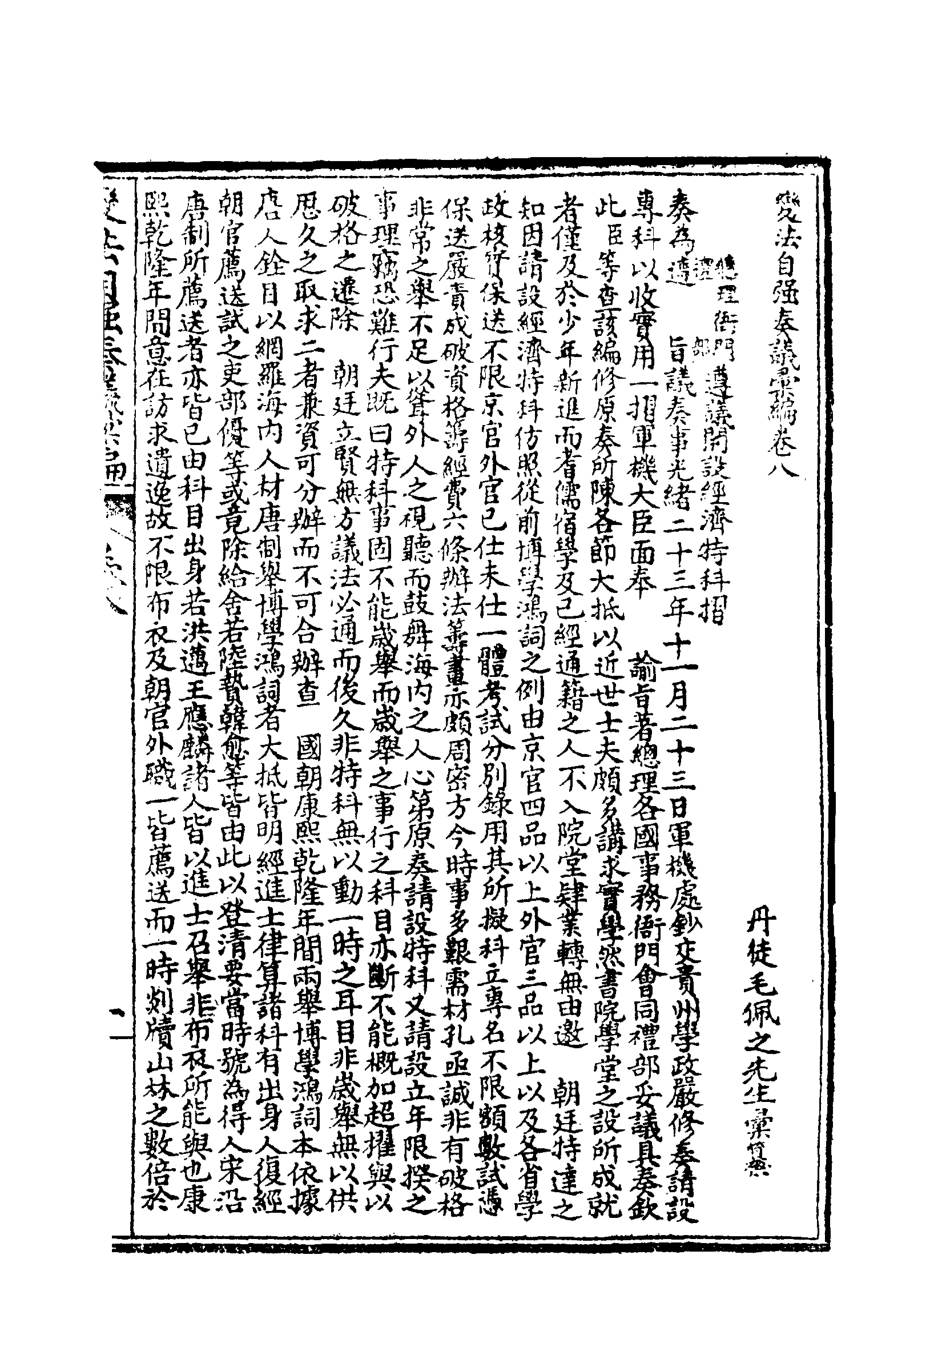 變法自强奏議彙編卷八
丹徒毛佩之先生彙
總理衙門禮部遵議開設經濟特科摺
奏為遵 旨議奏事光緒二十三年十一月二十三日軍機處鈔交貴州學政嚴修奏請設
專科以收實用一摺軍機大臣面奉 諭旨著總理各國事務衙門會同禮部妥議具奏欽
此臣等查該編修原奏所陳各節大抵以近世士夫頗多講求實學然書院學堂之設所成就
者僅及於少年新進而耆儒宿學及已經通籍之人不入院堂肄業轉無由邀 朝廷特達之
知因請設經濟特科仿照從前博學鴻詞之例由京官四品以上外官三品以上以及各省學
政核實保送不限京官外官已仕未仕一體考試分別錄用其所擬科立專名不限額數試憑
保送嚴責成破資格籌經費六條辦法籌畫亦頗周密方今時事多艱需材孔亟誠非有破格
非常之舉不足以聳外人之視聽而鼓舞海內之人心第原奏請設特科又請設立年限揆之
事理竊恐難行夫既曰特科事固不能歲舉而歲舉之事行之科目亦斷不能概加超擢與以
破格之遷除 朝廷立賢無方議法必通而後久非特科無以動一時之耳目非歲舉無以供
歷久之取求二者兼資可分辦而不可合辦查 國朝康熙乾隆年間兩舉博學鴻詞本依據
唐人銓目以網羅海內人材唐制舉博學鴻詞者大抵皆明經進士律算諸科有出身人復經
朝官薦送試之吏部優等或竟除給舍若陸贄韓愈等皆由此以登清要當時號為得人宋沿
唐制所薦送者亦皆已由科目出身若洪邁王應麟諸人皆以進士召舉非布衣所能與也康
熙乾隆年間意在訪求遺逸故不限布衣及朝官外職一皆薦送而一時剡牘山林之數倍於
變法自强奏議彙編 卷八
一